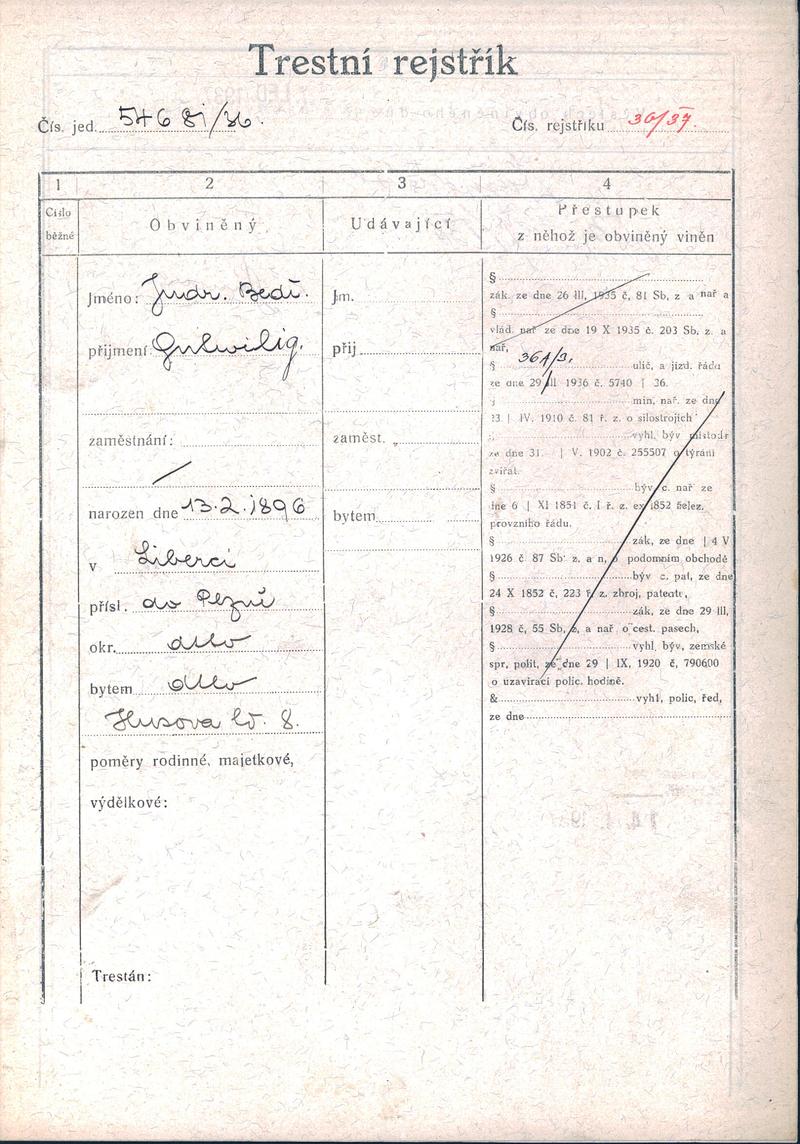 Trestní rejstřík
Čís. jed. 54681/36.
Čís. rejstříku 30/37.
1 2 3 4
Číslo běžné
Obviněný
Udávající
Přestupek
z něhož je obviněný viněn
Jméno: Judr. Bedř.
příjmení:
zaměstnání:
narozen dne 13.2.1896
v Liberci
přísl. do Plzně
okr. dtto
bytem dtto
Husova tř. 8.
poměry rodinné, majetkové,
výdělkové:
Trestán:
Jm.
příj
zaměst.
bytem
§
zák. ze dne 26 III, 1935 č, 81 Sb, z a nař a
§
vlád. nař ze dne 19 X 1935 č. 203 Sb, z. a
nař,
§ 36 1/3, ulič, a jízd. řádu
ze dne 29 III 1936 č. 5740 | 36.
min, nař. ze dne
23. | IV. 1910 č. 81 ř. z. o silostrojích
vyhl. býv místodr
ze dne 31. | V. 1902 č. 255507 o týrání
zvířat.
§ býv c. nař ze
dne 6 | XI 1851 č. 1 ř. z. ex 1852 želez.
provzního řádu.
§ zák, ze dne | 4 V
1926 č. 87 Sb z. a n, o podomním obchodě
§ býv c. pat, ze dne
24 X 1852 č, 223 ř. z. zbroj, patentu,
§ zák, ze dne 29 III,
1928 č, 55 Sb, z, a nař o cest. pasech,
§ vyhl, býv, zemské
spr, polit, ze dne 29 | IX, 1920 č, 790600
o uzavírací polic. hodině.
& vyhl, polic, řed,
ze dne